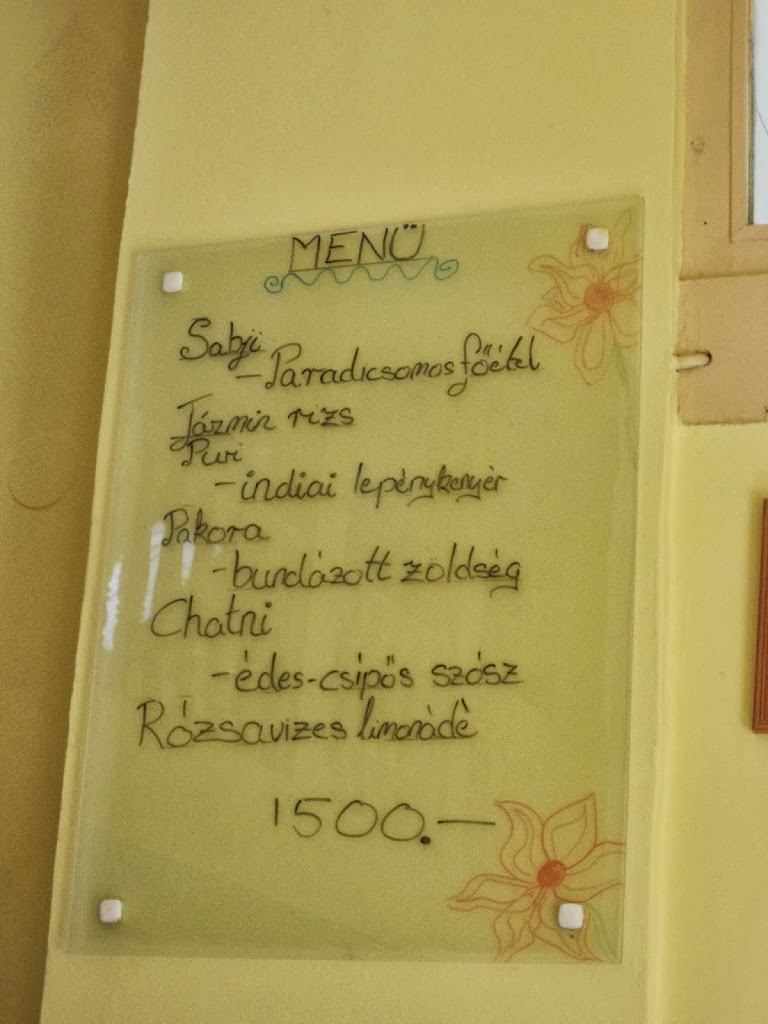 MENÜ
Sabji
- Paradicsomos főétel
Jázmin rizs
Puri
- indiai lepénykenyér
Pakora
- bundázott zöldség
Chatni
- édes-csípős szósz
Rózsavizes limonádé
1500.-